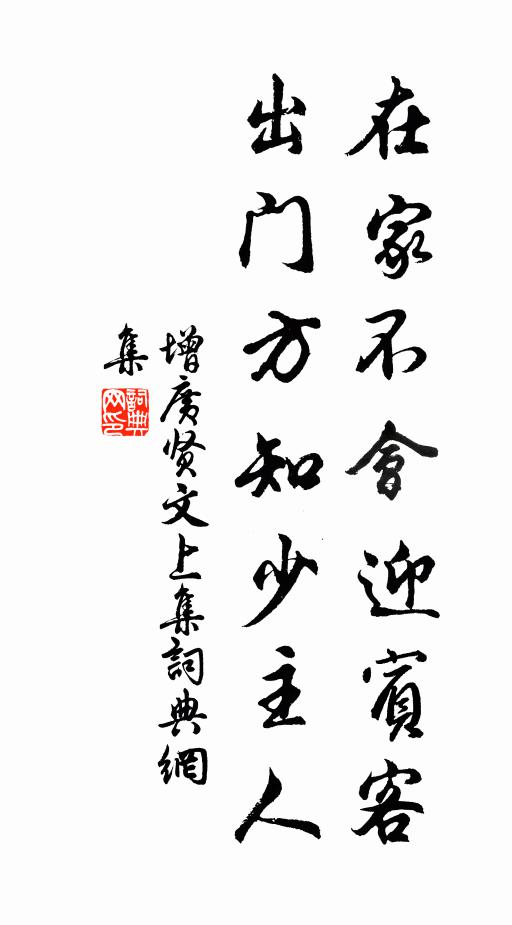 在家不會迎賓客
出門方知少主人
增廣贤文上集詞典網
集
詞典网印